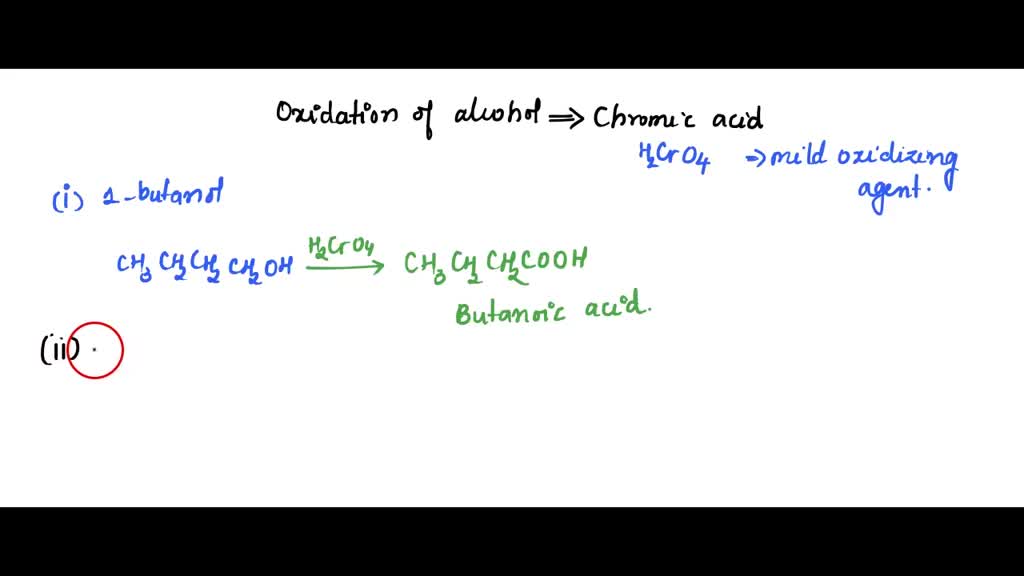 Oxidation of alcohol ⇒ Chromic acid
H₂CrO₄ → mild oxidizing
agent.
(i) 1-butanol
CH₃ CH₂ CH₂ CH₂OH —H₂CrO₄→ CH₃ CH₂ CH₂COOH
Butanoic acid.
(ii)